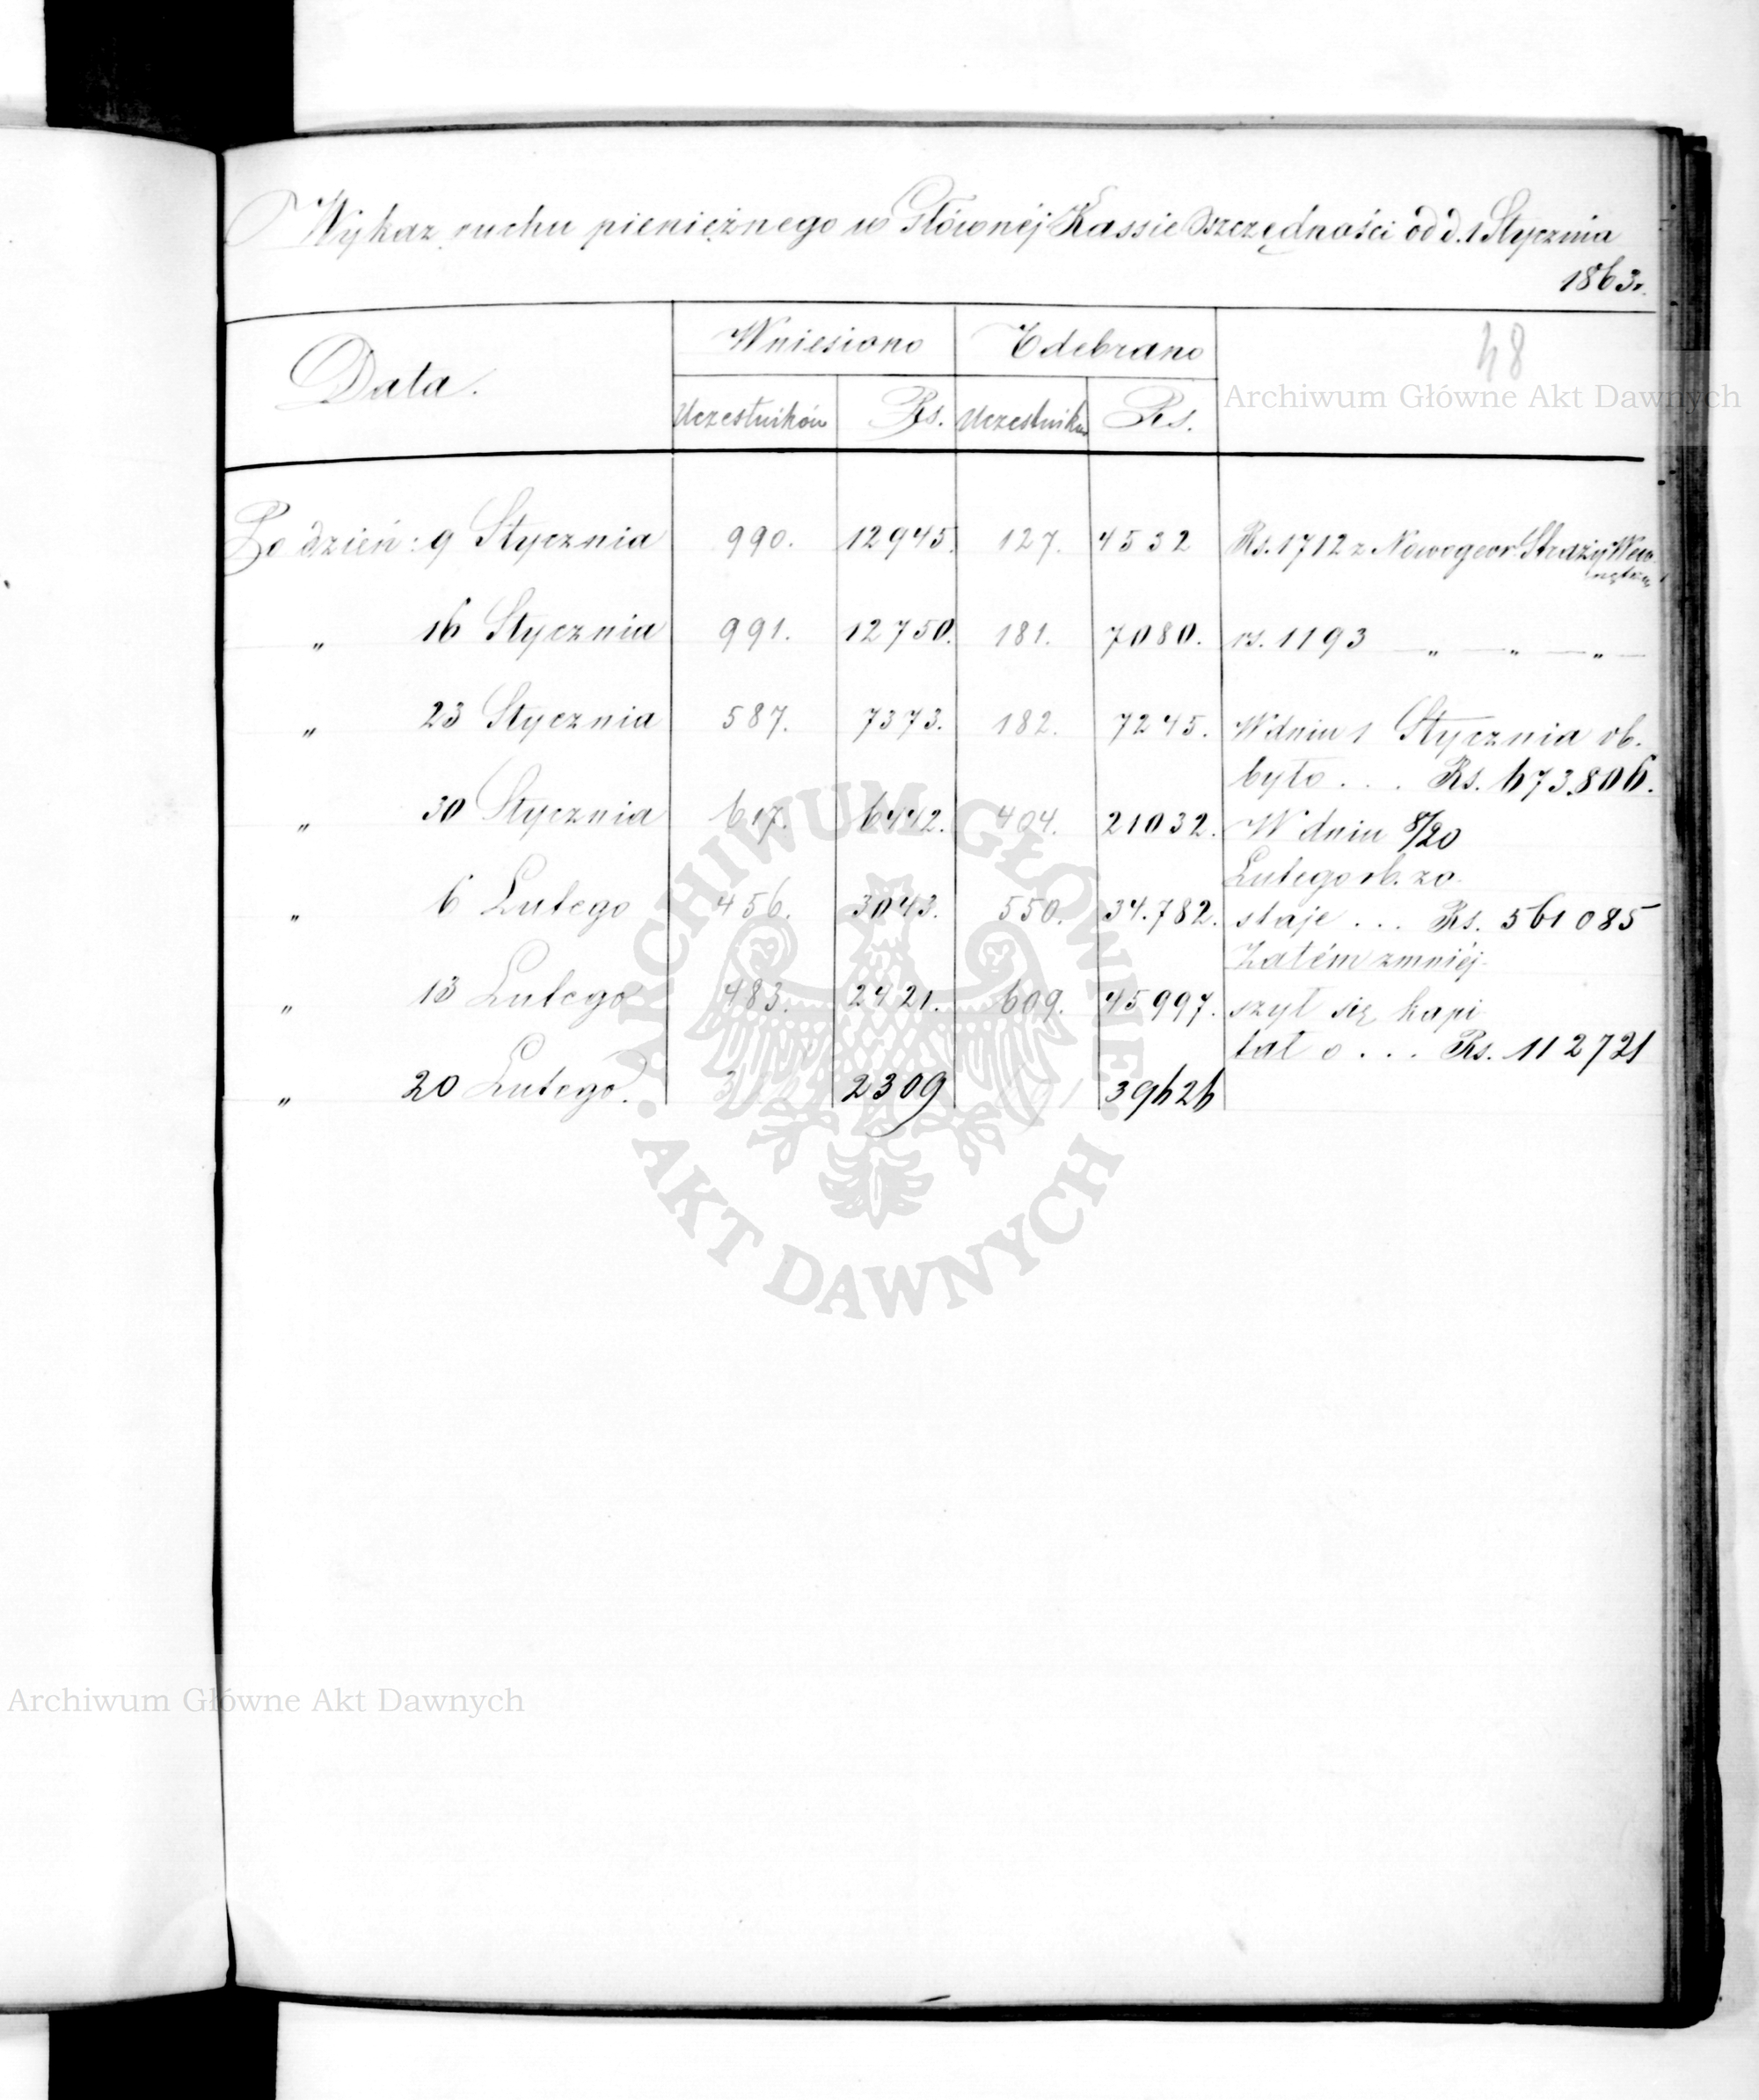 Wykaz ruchu pieniężnego w Głównéj Kassie Oszczędności od d. 1 Stycznia
1863r.
48
Data. Wniesiono Odebrano
Uczestników Rs. Uczestników Rs.
Archiwum Główne Akt Dawnych
Po dzień: 9 Stycznia 990. 12945. 127. 4532 Rs. 1712 z Nowogeor. Straży Wew-
„ 16 Stycznia 991. 12750. 181. 7080. rs. 1193 — „ — „ — „ —
„ 23 Stycznia 587. 7373. 182. 7245. W dniu 1 Stycznia rb.
było . . . Rs. 673.806.
„ 30 Stycznia 617. 6442. 404. 21032. W dniu 8/20
Lutego rb. zo-
„ 6 Lutego 456. 3043. 550. 34.782. staje . . . Rs. 561085
Zatém zmniéj-
„ 13 Lutego 483. 2421. 609. 45997. szył się kapi
tał o . . . Rs. 112721
„ 20 Lutego. 2309 39626
ARCHIWUM GŁÓWNE
· AKT DAWNYCH ·
Archiwum Główne Akt Dawnych